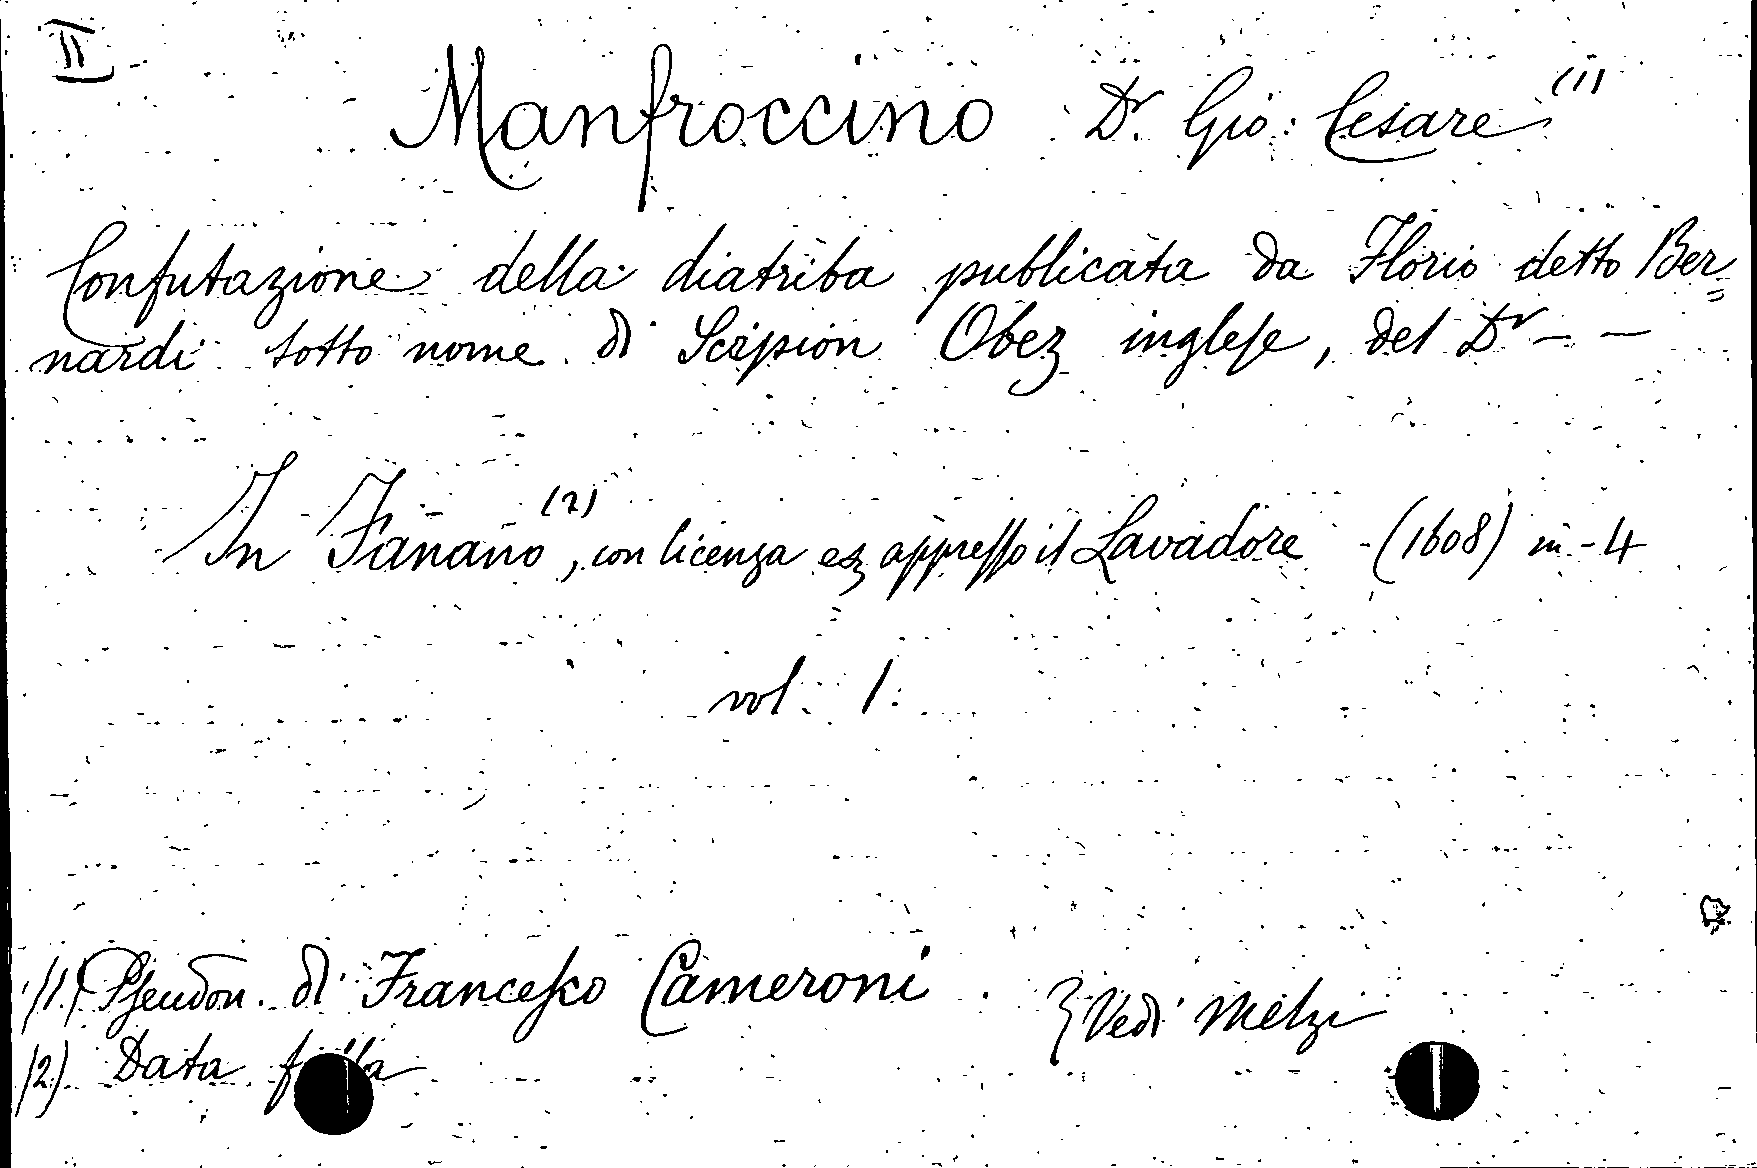 II
Manfroccino Dr. Gio: Cesare (1)
Confutazione della diatriba publicata da Florio detto Ber=
nardi sotto nome di Scipion Obez inglese, del Dr - -
In Fanano (2), con licenza ez appresso il Lavadore - (1608) in-4
vol. 1.
(1.) Pseudon. di Francesco Cameroni
} Vedi Melzi
(2) Data